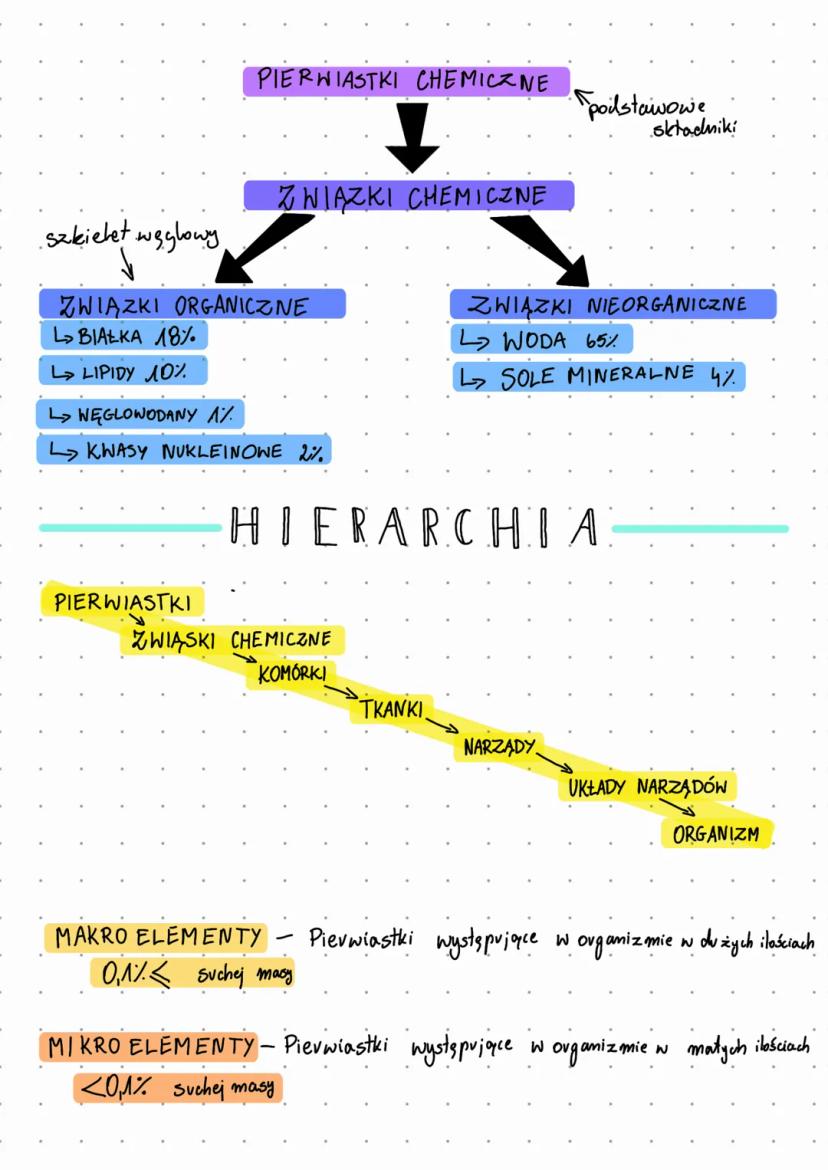 PIERWIASTKI CHEMICZNE
podstawowe
składniki
ZWIĄZKI CHEMICZNE
szkielet węglowy
ZWIĄZKI ORGANICZNE
↳ BIAŁKA 18%
↳ LIPIDY 10%
↳ WĘGLOWODANY 1%
↳ KWASY NUKLEINOWE 2%
ZWIĄZKI NIEORGANICZNE
↳ WODA 65%
↳ SOLE MINERALNE 4%
HIERARCHIA
PIERWIASTKI
ZWIĄSKI CHEMICZNE
KOMÓRKI
TKANKI
NARZĄDY
UKŁADY NARZĄDÓW
ORGANIZM
MAKRO ELEMENTY – Pierwiastki występujące w organizmie w dużych ilościach
0,1% ⩽ suchej masy
MIKRO ELEMENTY – Pierwiastki występujące w organizmie w małych ilościach
<0,1% suchej masy